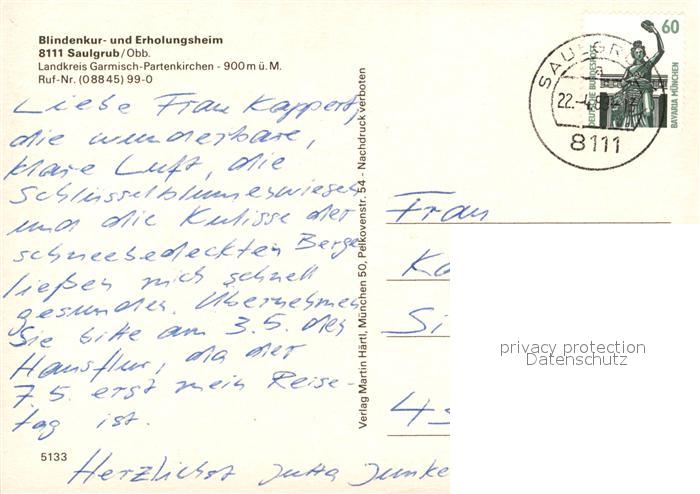 Blindenkur- und Erholungsheim
8111 Saulgrub/Obb.
Landkreis Garmisch-Partenkirchen - 900 m ü. M.
Ruf-Nr. (0 88 45) 99-0
Liebe Frau Kappert,
die wunderbare,
klare Luft, die
Schlüsselblumenwiesen
und die Kulisse der
schneebedeckten Berge
ließen mich schnell
gesunden. Übernehmen
Sie bitte am 3.5. den
Hausflur, da der
7.5. erst mein Reise-
tag ist.
Herzlichst Jutta Junke
5133
Verlag Martin Härtl, München 50, Pelkovenstr. 54 - Nachdruck verboten
60
DEUTSCHE BUNDESPOST
BAVARIA MÜNCHEN
SAULGRUB
22.-4.8
8111
Frau
Ka
Si
45
privacy protection
Datenschutz